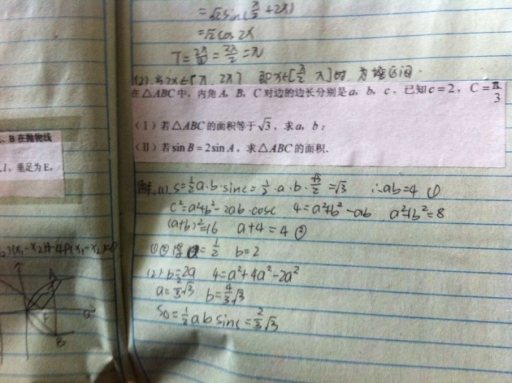 =√2sin(π/2+2x)
=√2cos2x
T=2π/|ω|=2π/2=π
(2) 当2x∈[π, 2π] 即x∈[π/2 π]时
在△ABC中，内角A、B、C对边的边长分别是a、b、c，已知c=2，C=π/3
（Ⅰ）若△ABC的面积等于√3，求a，b；
（Ⅱ）若sinB=2sinA，求△ABC的面积.
B在抛物线
l，垂足为E，
解：(1) S=1/2a·b·sinc=1/2·a·b·√3/2=√3 ∴ab=4 ①
c²=a²+b²-2ab·cosc 4=a²+b²-ab a²+b²=8
(a+b)²=16 a+b=4 ②
①②得 a=2 b=2
(2) b=2a 4=a²+4a²-2a²
a=2/3√3 b=4/3√3
S△=1/2absinc=2/3√3